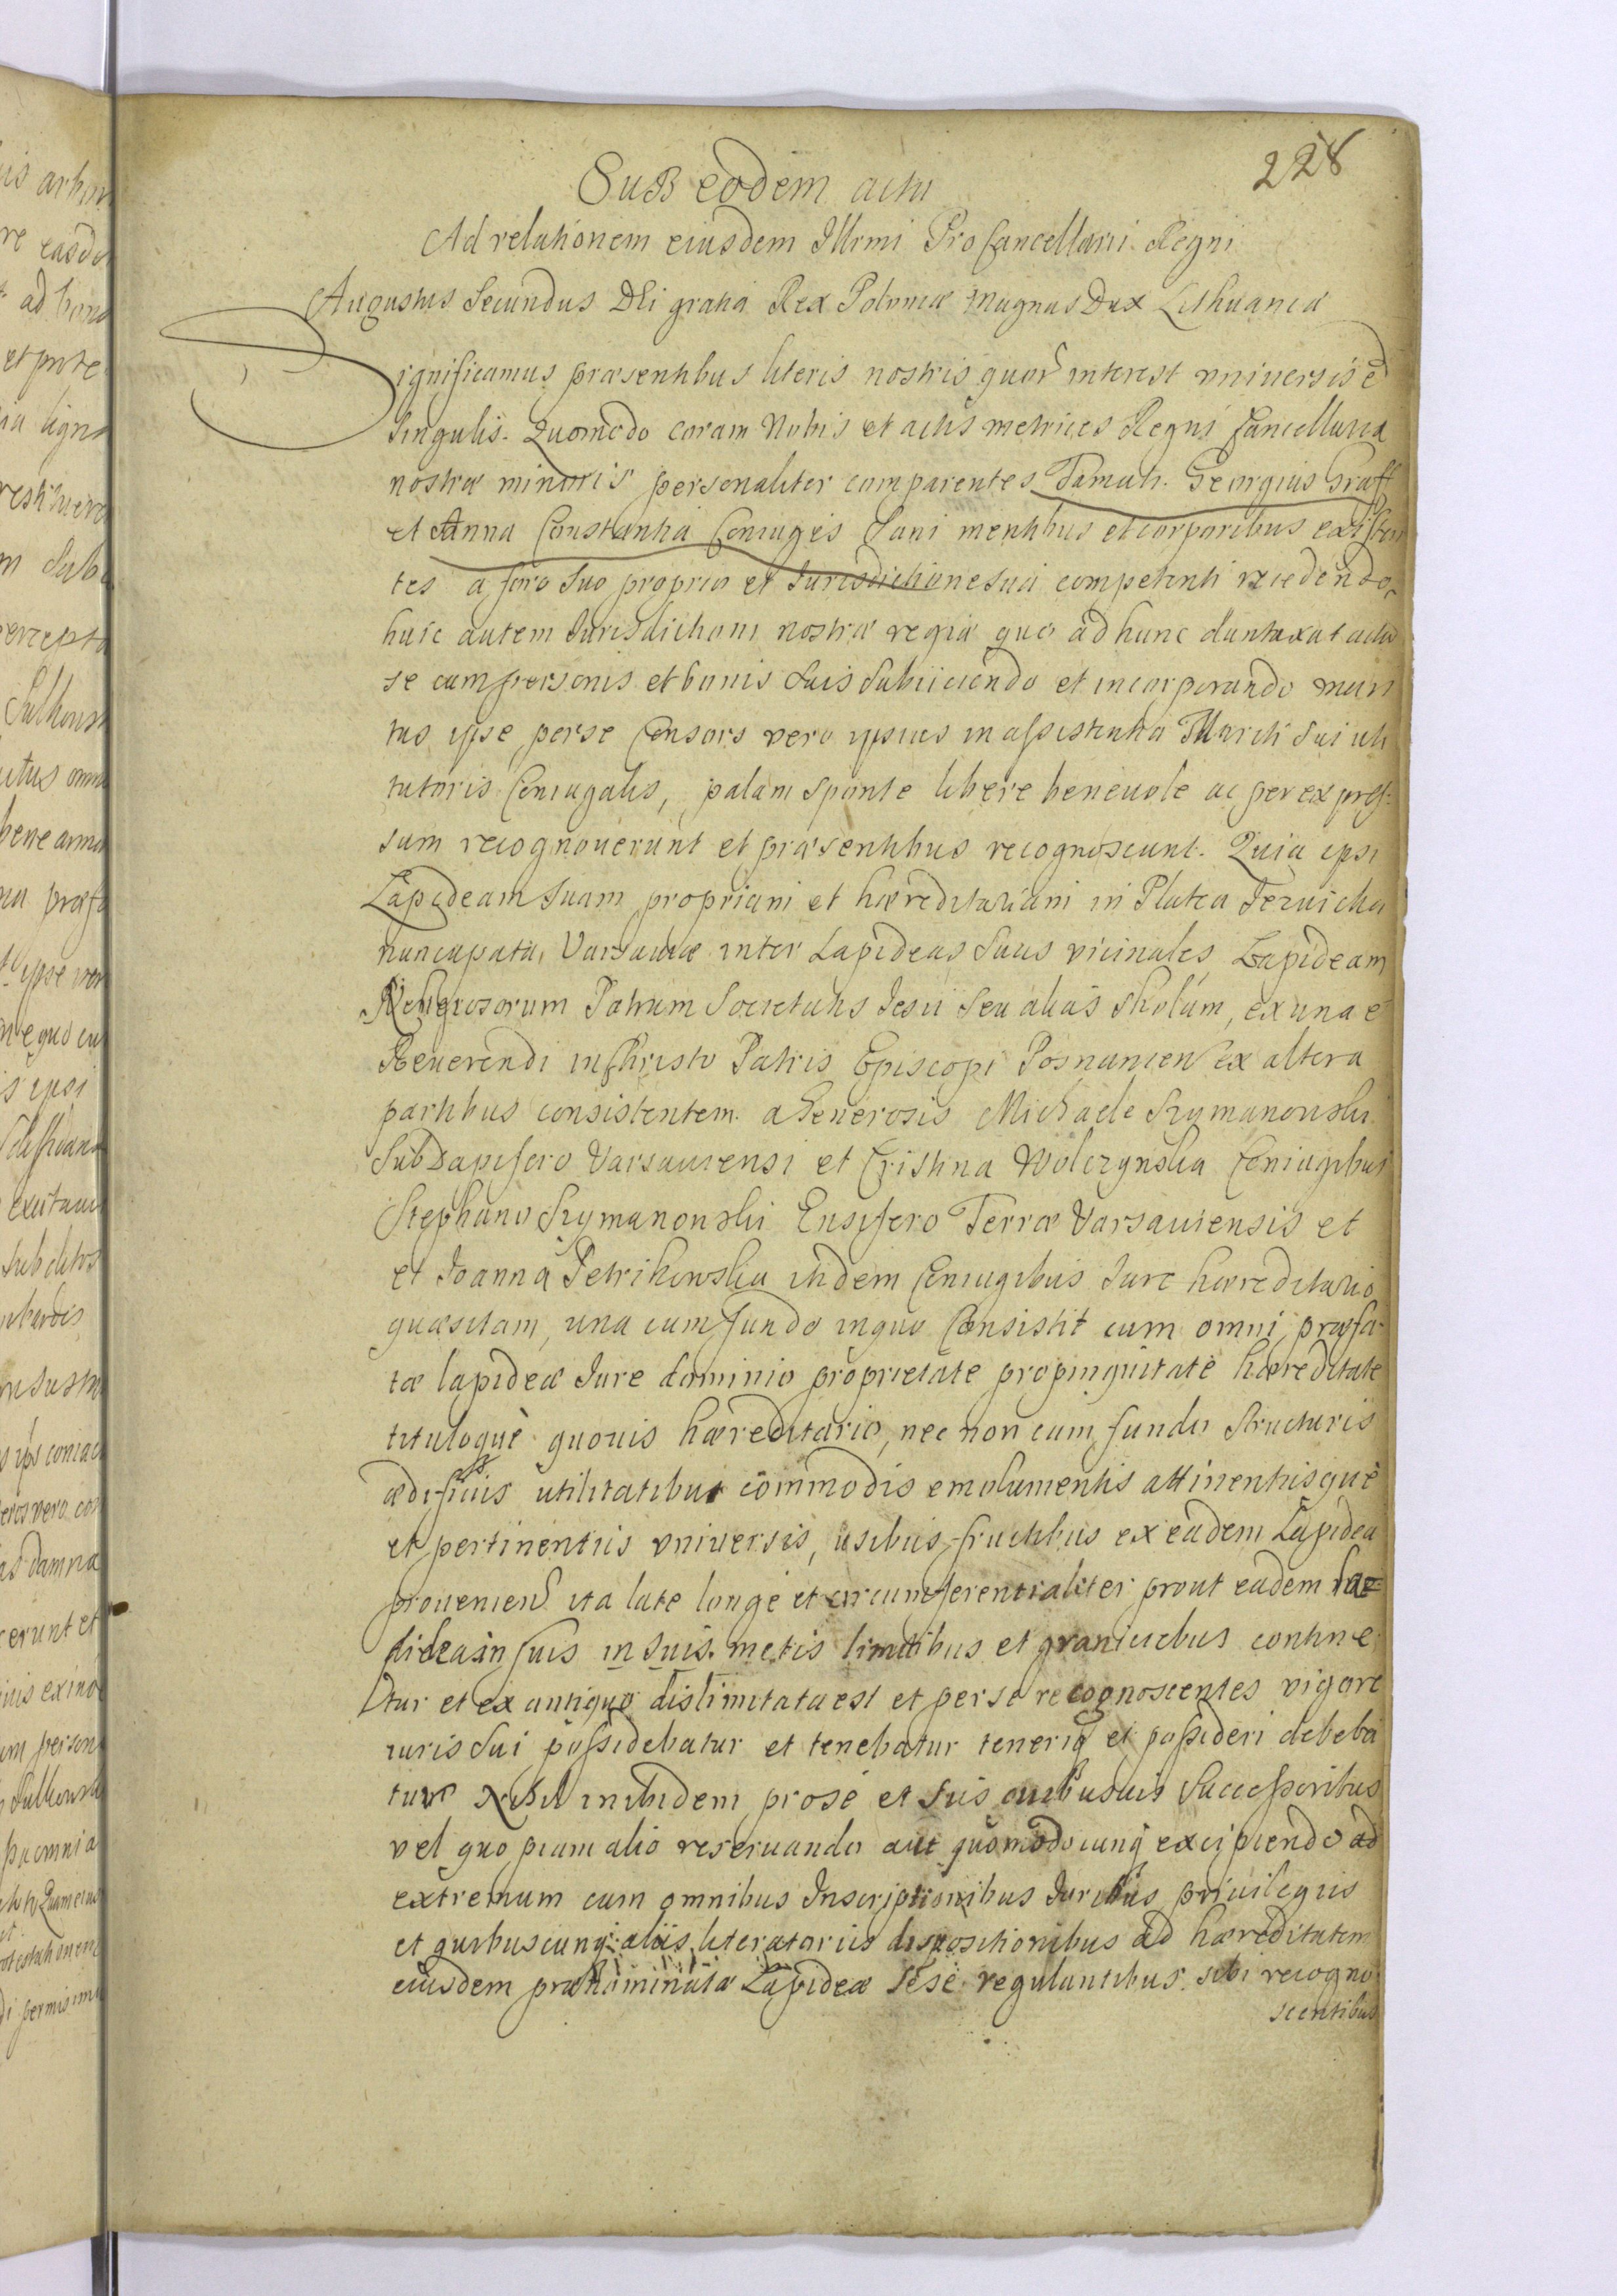 228
Sub eodem actu
Ad relationem eiusdem Illrmi Pro Cancellarii Regni
Augustus Secundus Dei gratia Rex Poloniæ Magnus Dux Lithuaniæ
Significamus præsentibus literis nostris quor interest vniuersis e
singulis. Quomodo coram Nobis et actis metrices Regni Cancellariæ
nostræ minoris personaliter comparentes Famati. Georgius Graff
et Anna Constantia Coniuges Sani mentibus et corporibus existen
tes a foro suo proprio et Jurisdictione sua competenti recedendo,
huic autem Jurisdictioni nostræ regiæ quo ad hunc duntaxat actu
se cum personis et bonis suis subiiciendo et incorporando mari
tus ipse per se Consors vero ipsius in assistentia Mariti sui uti
tutoris Coniugalis, palam sponte libere beneuole ac per expres
sum recognouerunt et præsentibus recognoscunt. Quia ipsi
Lapideam suam propriam et hæreditariam in Platea Jezuicka
nuncupata, Varsauiæ inter Lapideas suas vicinales Lapideam
Religiosorum Patrum Societatis Jesu seu alias Skolam, ex una e
Reuerendi in Christo Patris Episcopi Posnanien ex altera
partibus consistentem. a Generosis Michaele Szymanowski
SubDapifero Varsauiensi et Cristina Wolczynska Coniugibus
Stephano Szymanowski Ensifero Terræ Varsauiensis et
et Joanna Petrikowska itidem Coniugibus Jure hæreditario
quæsitam, una cum fundo in quo Consistit cum omni præfa-
tæ lapideæ Jure dominio proprietate propinquitate hæreditate
tituloque quouis hæreditario, nec non cum fundo structuris
ædificiis utilitatibus commodis emolumentis attinentiisque
et pertinentiis vniuersis, usibus fructibus ex eadem Lapidea
prouenien ita late longe et circumferentialiter prout eadem La=
pidea in suis in suis. metis limitibus et graniciebus contine
tur et ex antiquo dislimitata est et per se recognoscentes vigore
iuris sui possidebatur et tenebatur teneriq et possideri debeba
tur Nihil inibidem pro se et suis quibusuis Successoribus
vel quo piam alio reseruando aut quomodocunq excipiendo ad
extremum cum omnibus Inscriptionibus Juribus priuilegiis
et quibuscunq aliis literatoriis dispositionibus ad hæreditatem
eiusdem prænominatæ Lapideæ sese regulantibus. sibi recogno
scentibus